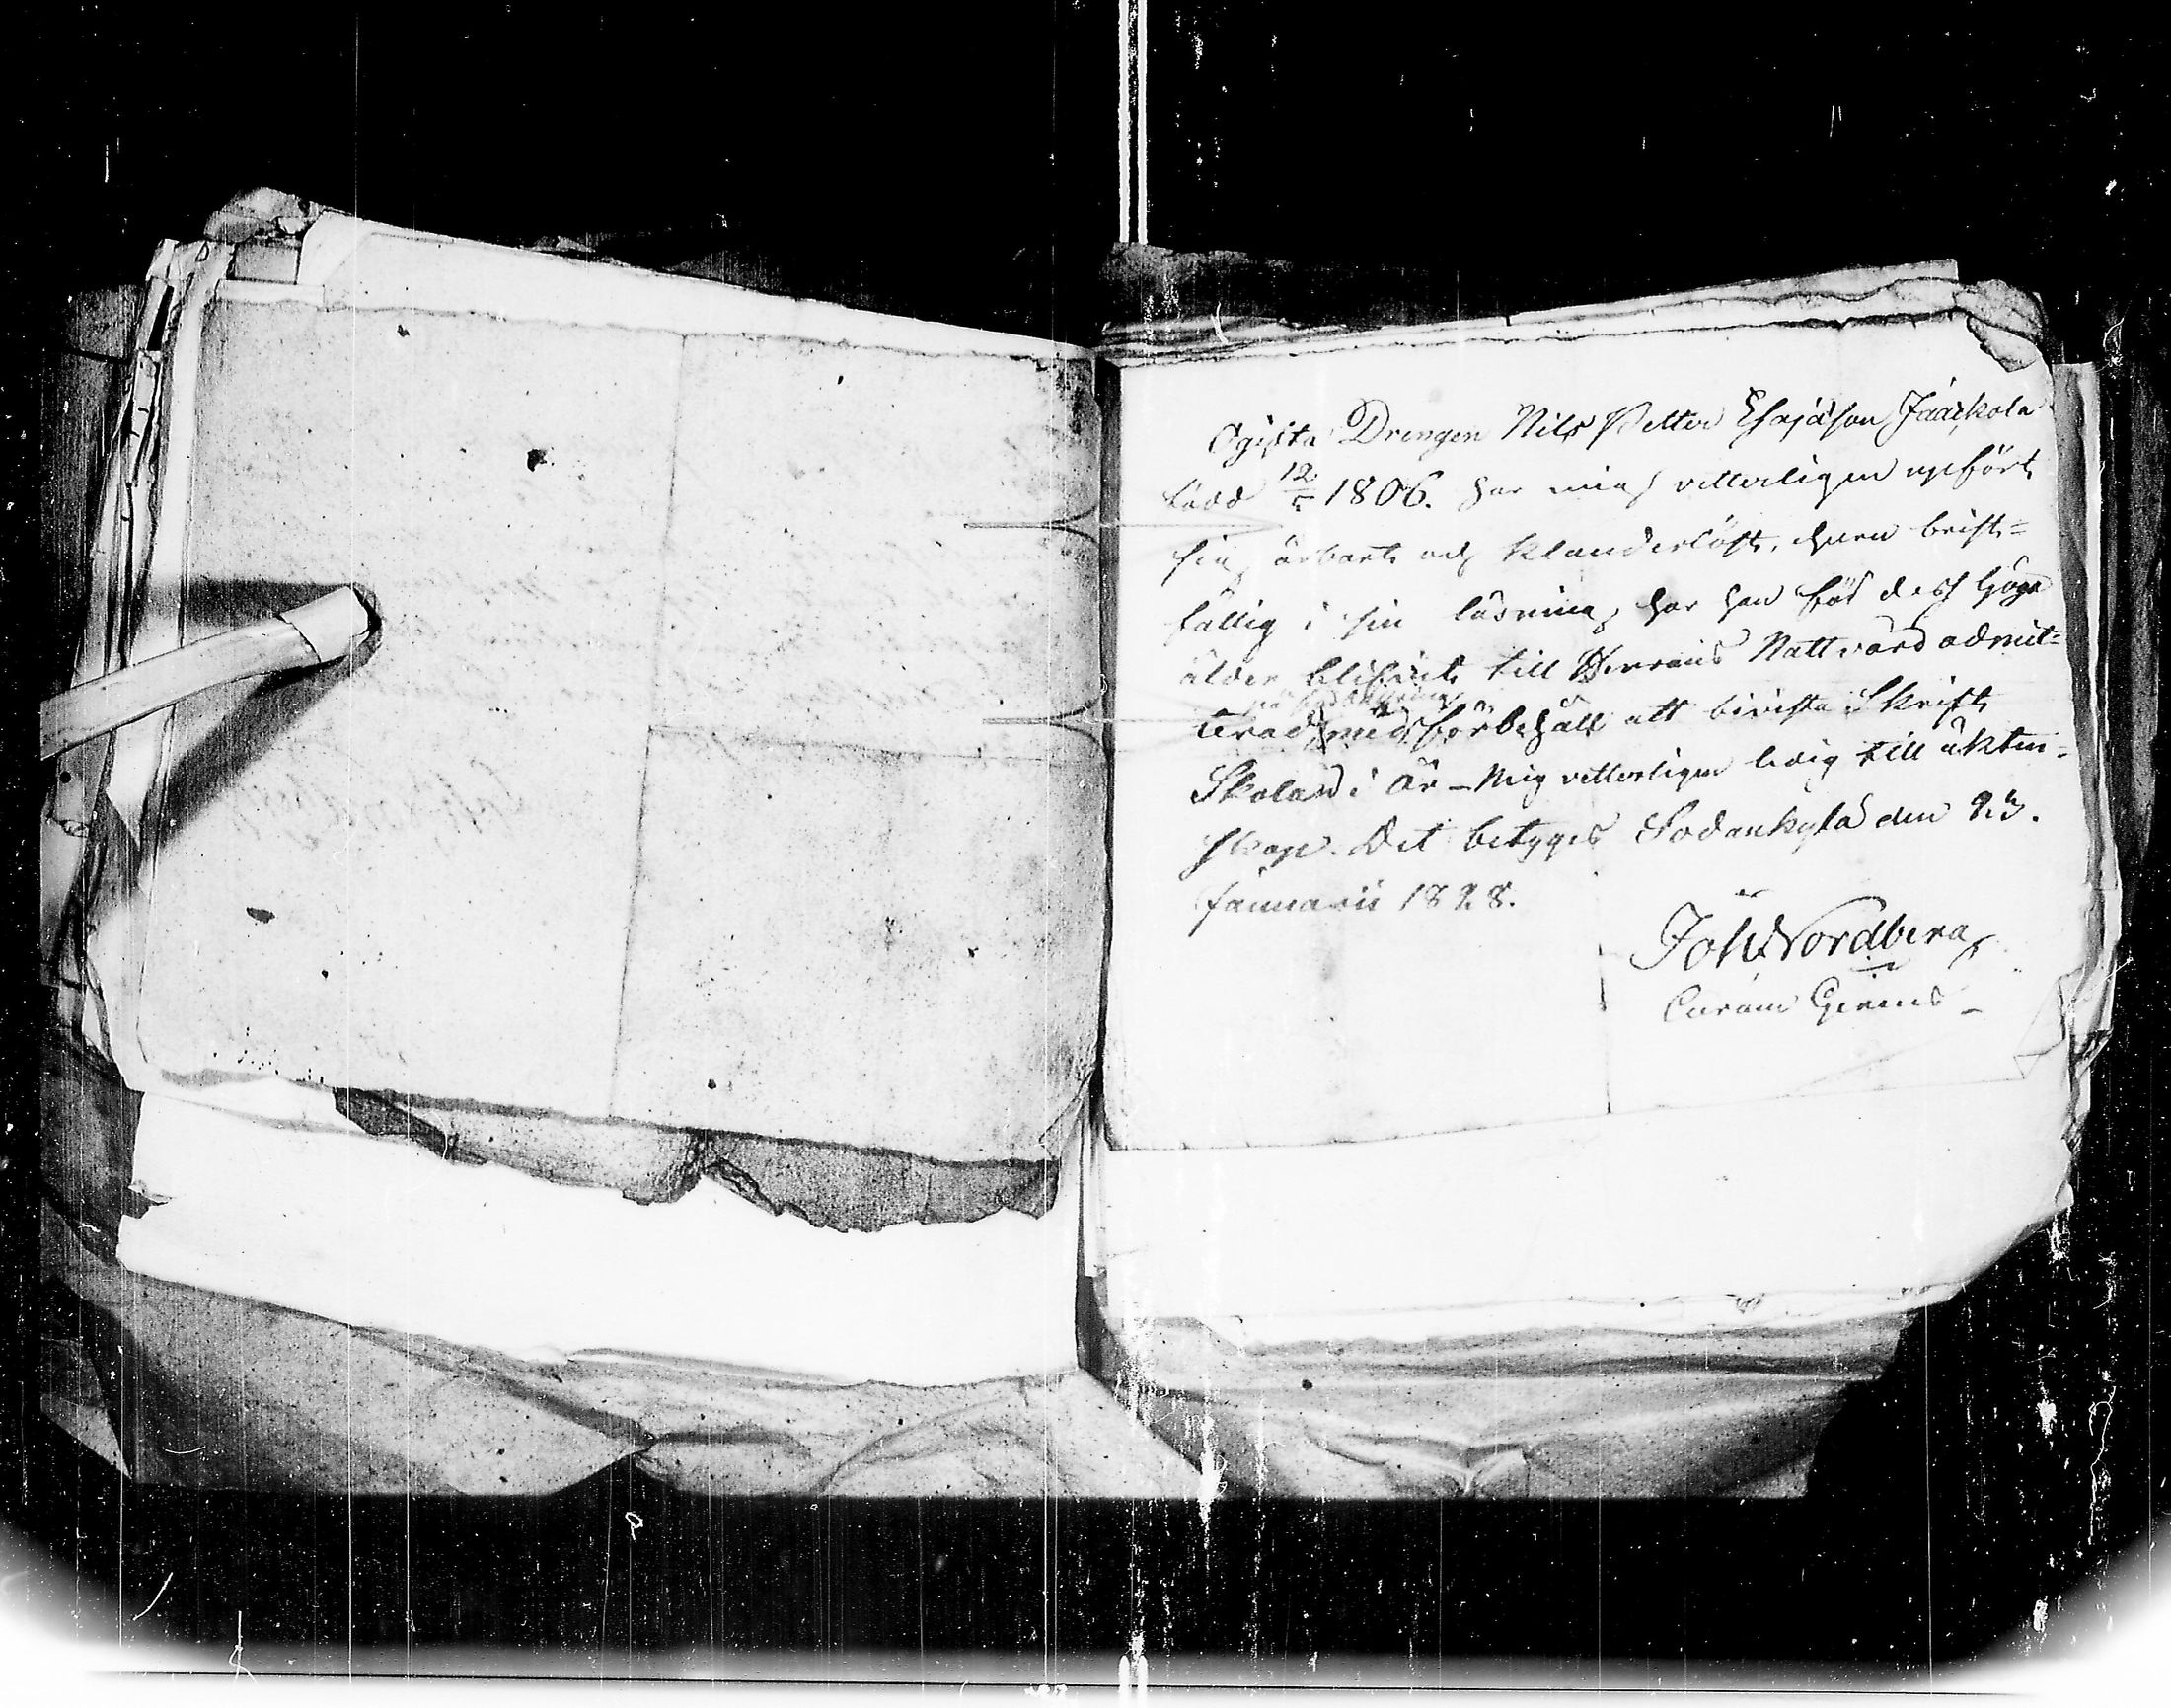 Ogifta Drengen Nils Petter Esajasson Jääskola
född 12/5 1806. har mig vetterligen upfört
sig ärbart och klanderlöst, ehuru brist=
fällig i sin läsning, har han för dess höga
ålder blifvit till Herrans Nattvard admit=
terad med förbehåll att bivista Skrift
Skolan i År – Mig vetterligen ledig till äkten=
skap. Det betyges Sodankylä den 23.
Januarii 1828.
Joh Nordberg
Curam Gerens